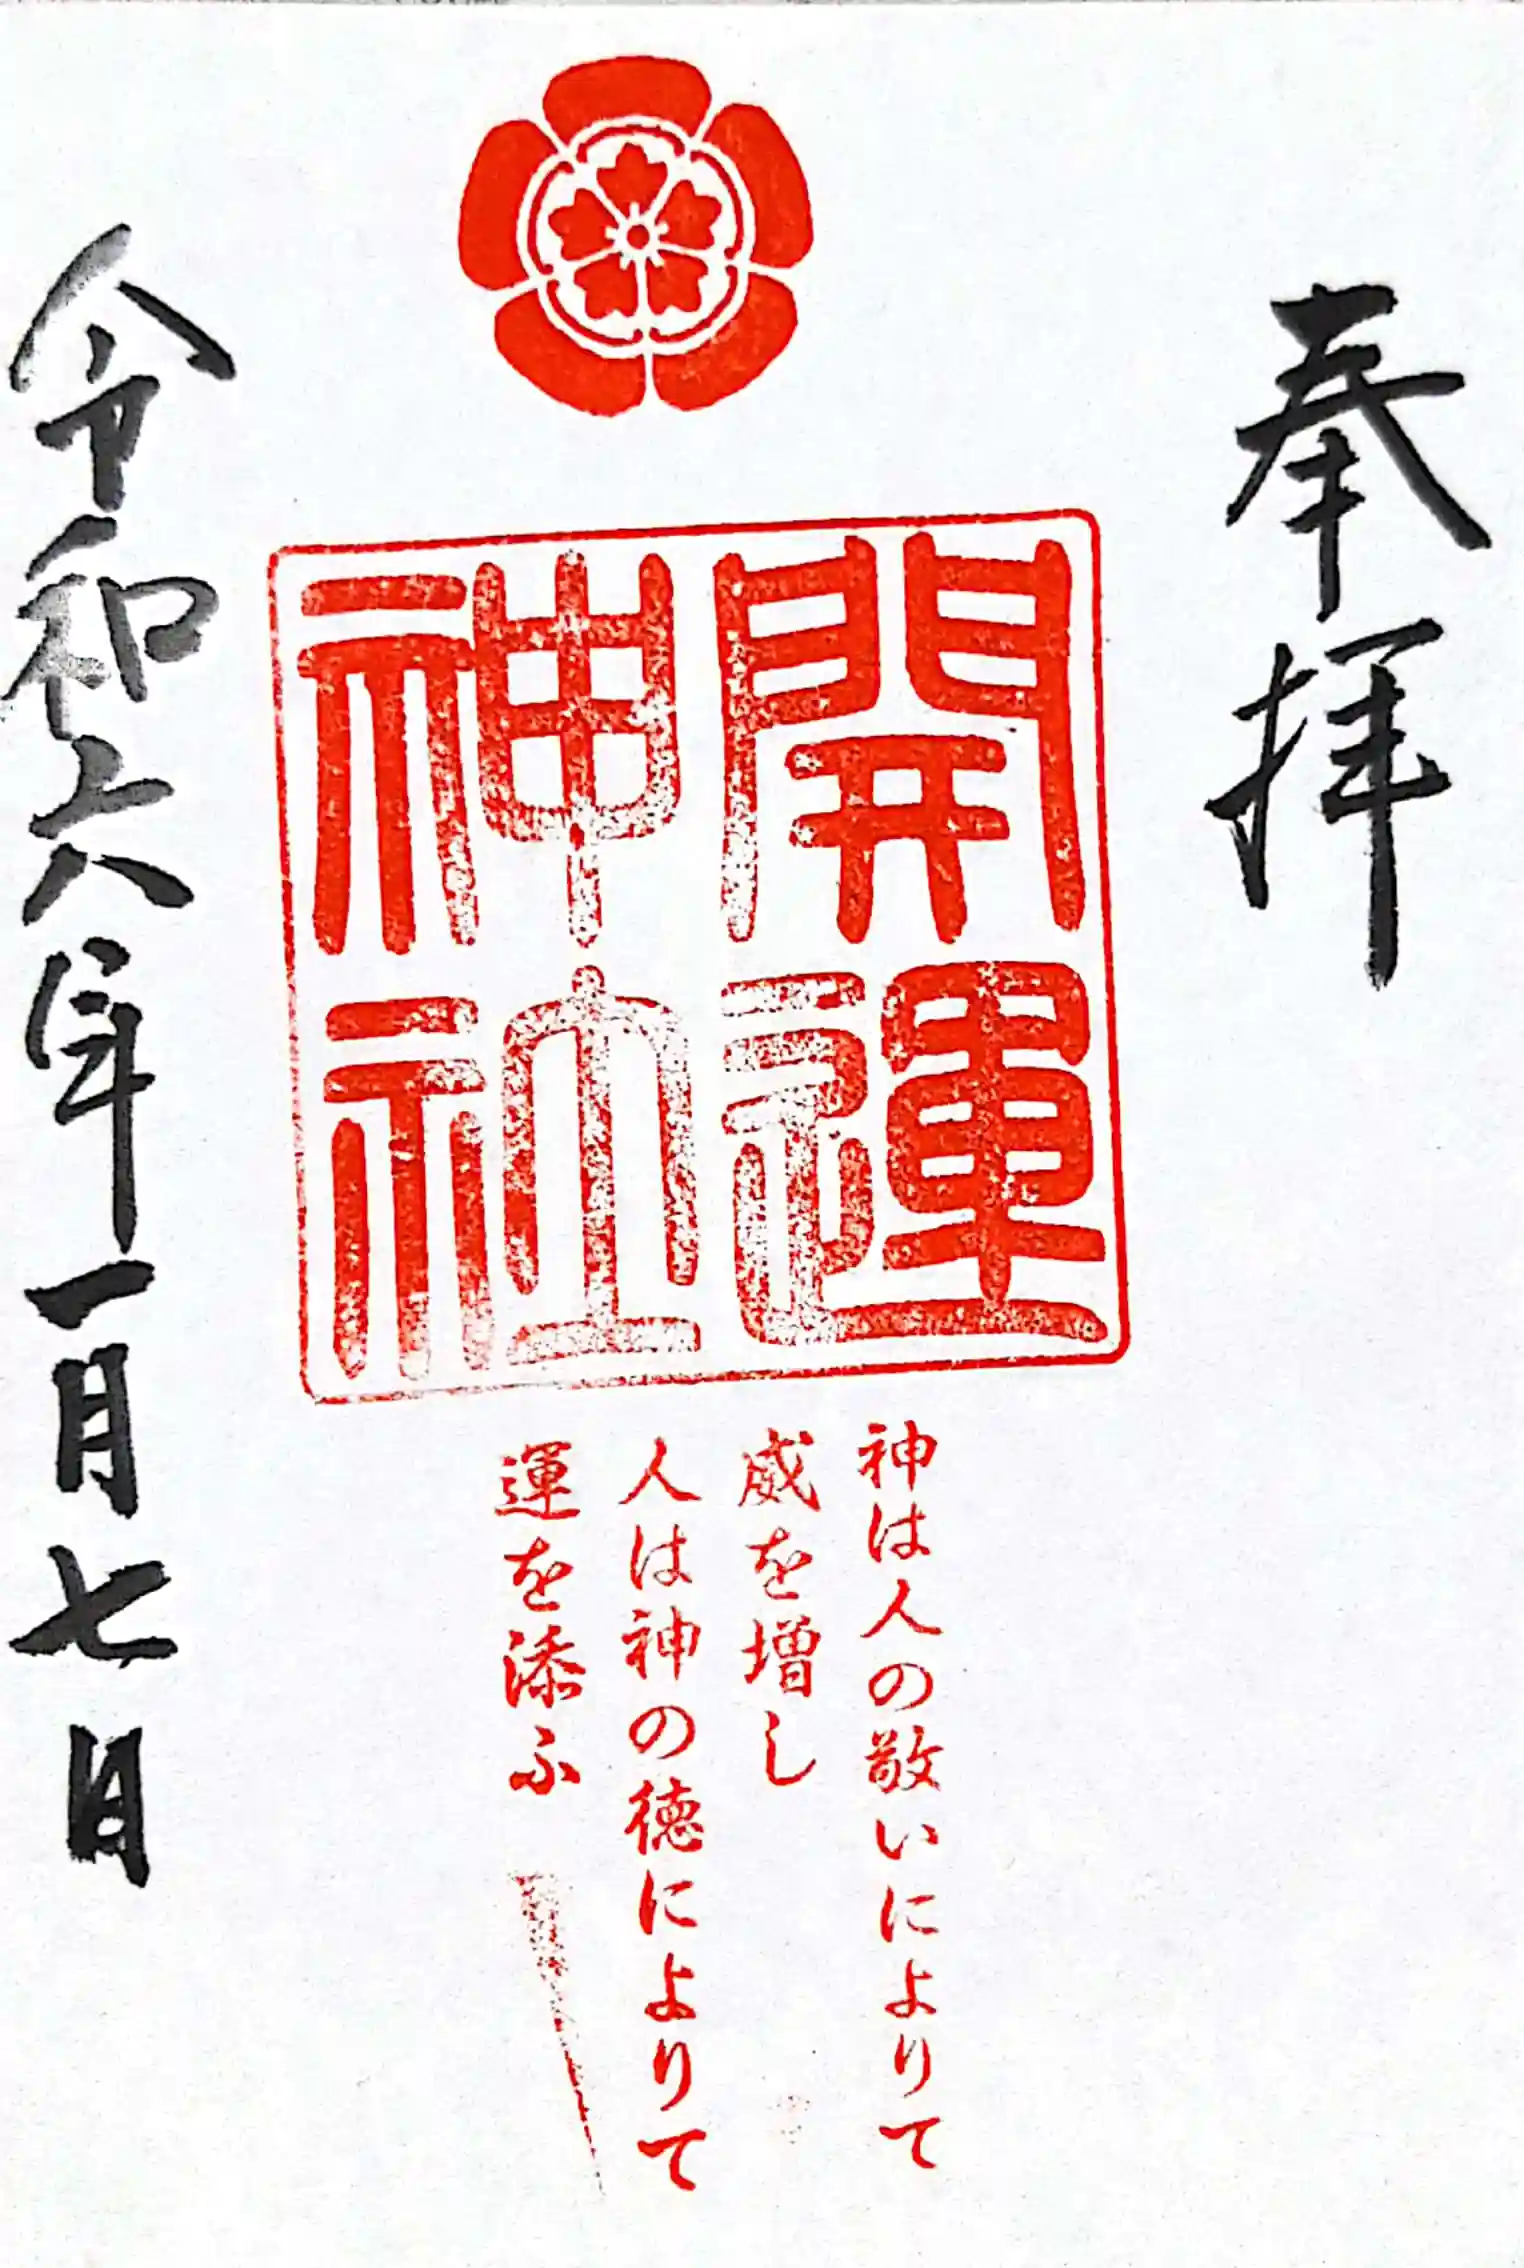 奉拝
開運
神社
神は人の敬いによりて
威を増し
人は神の徳によりて
運を添ふ
令和六年一月七日